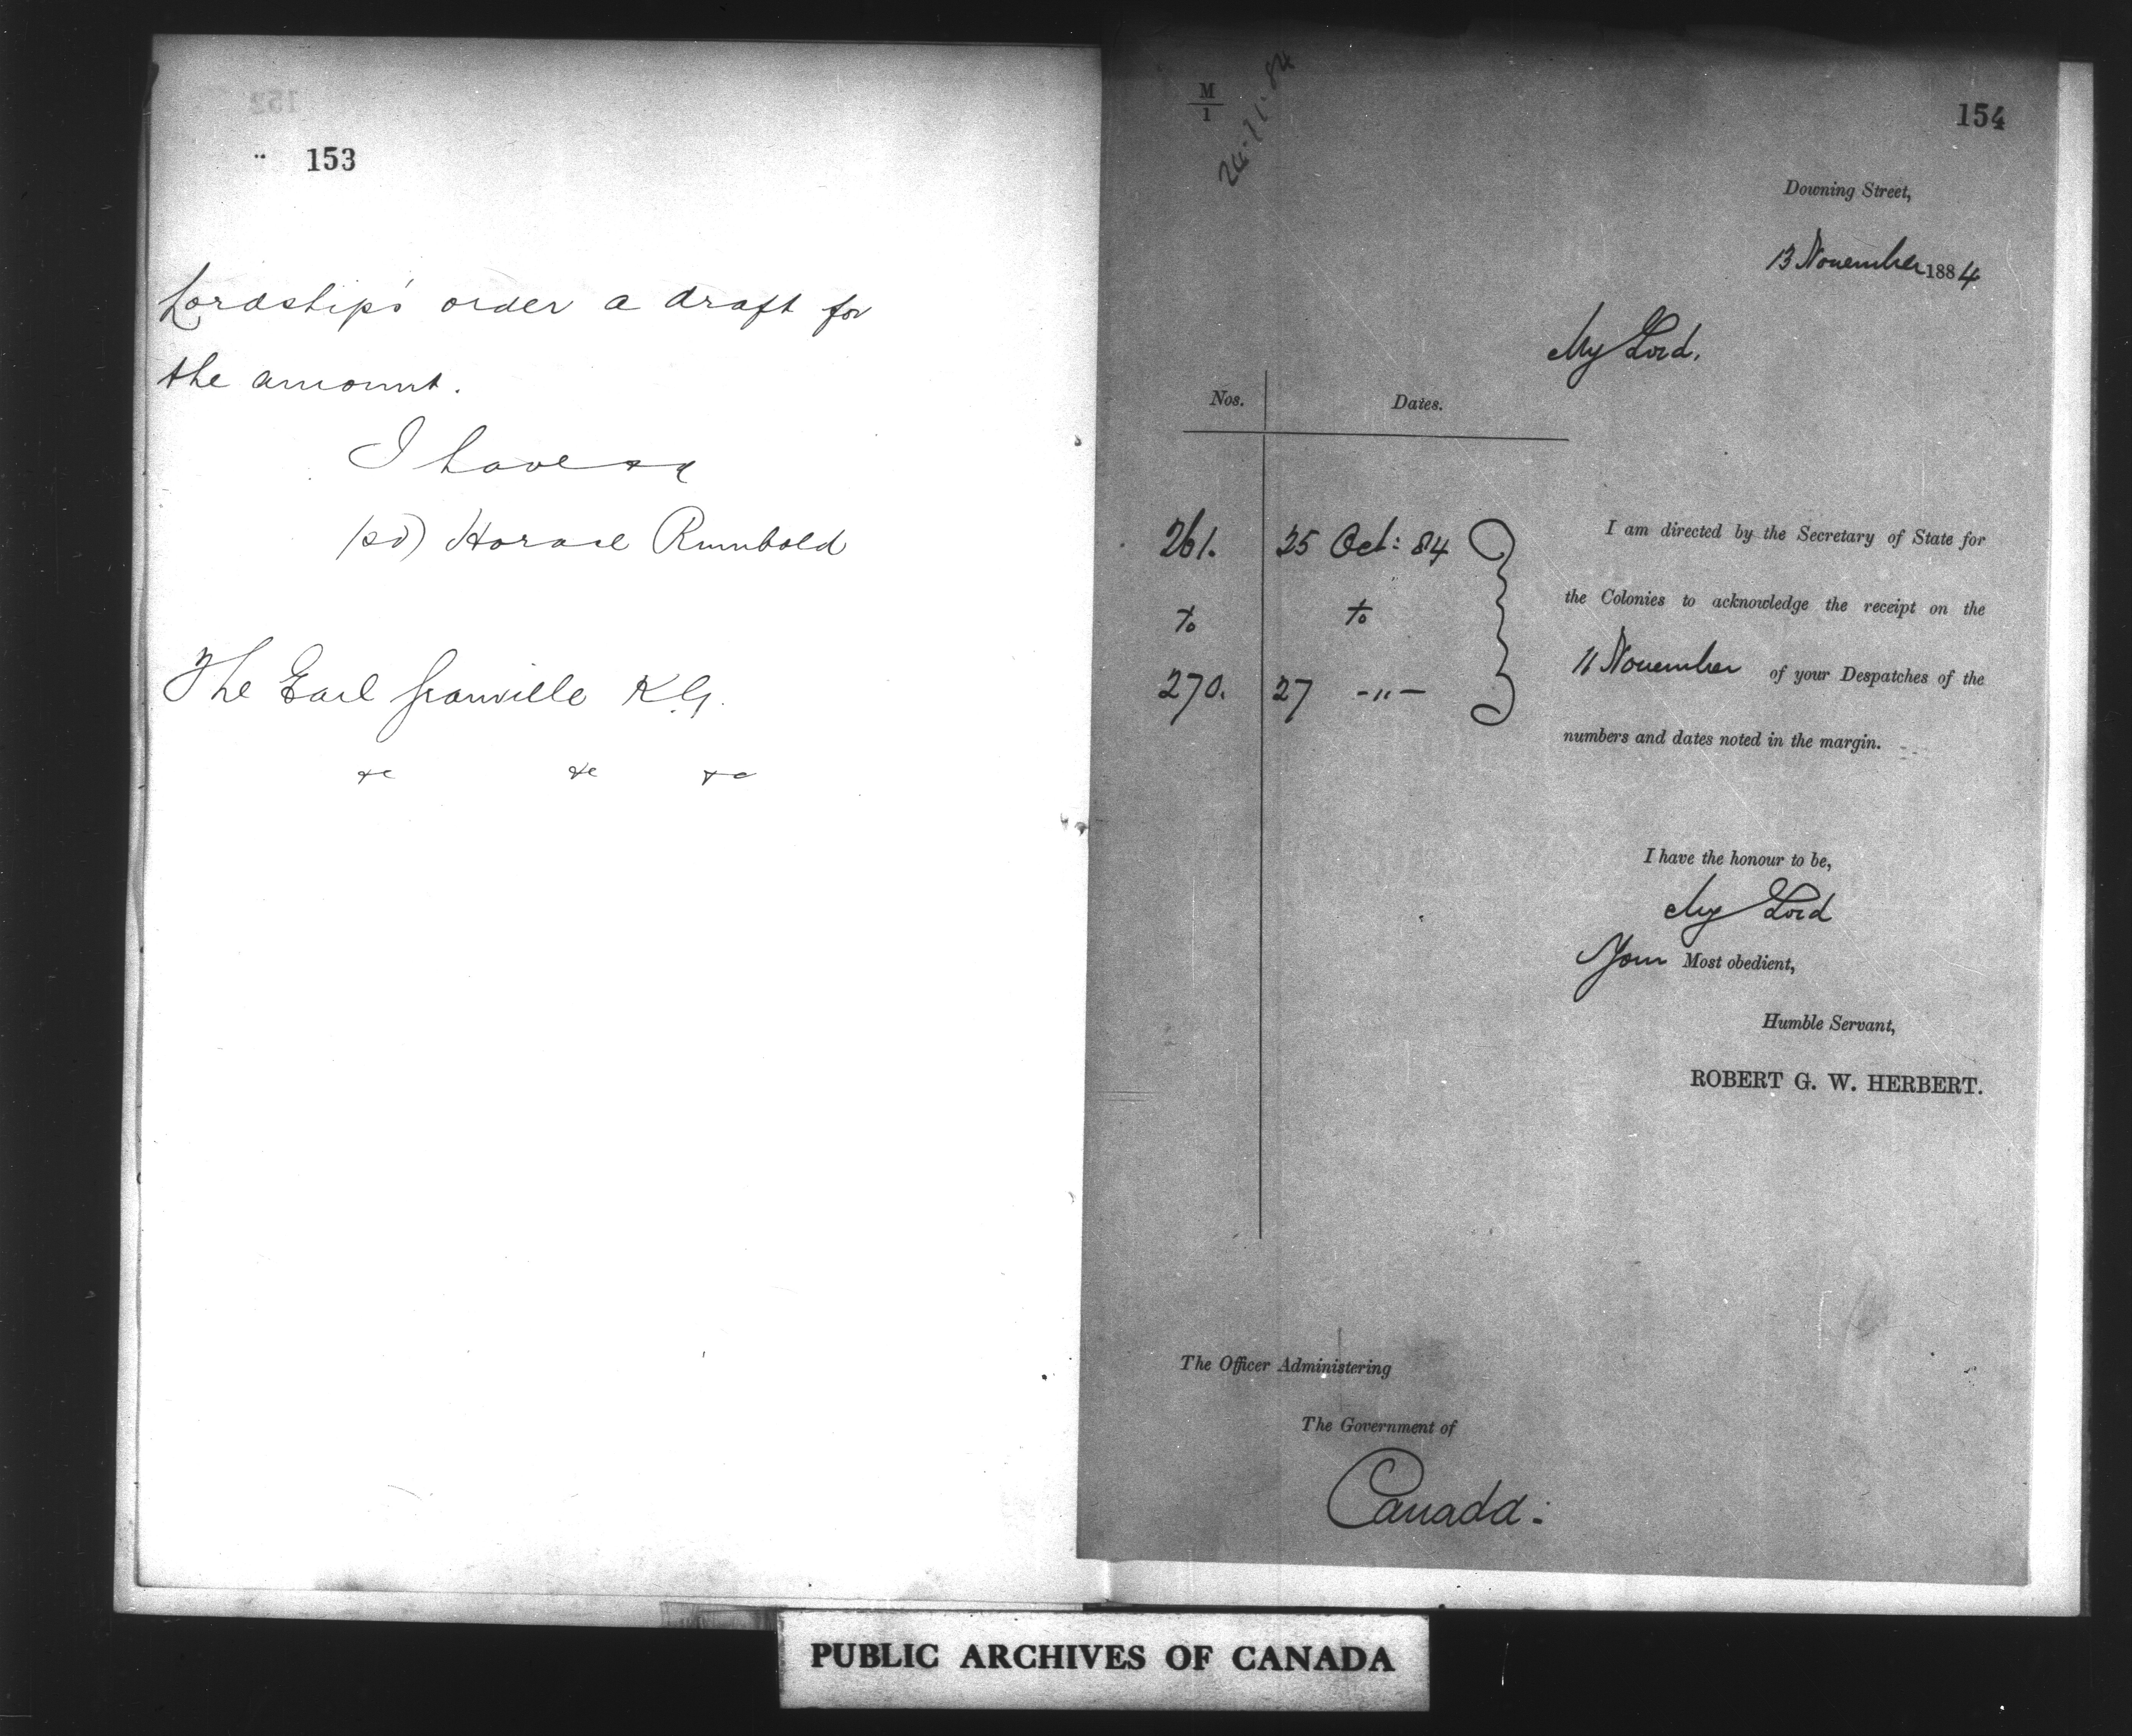 152
153
Lordship's order a draft for
the amount.
I have &c
(sd) Horace Rumbold
The Earl Granville K.G.
&c &c &c
M
1
24.11.84
154
Downing Street,
13 November 1884
My Lord,
Nos. Dates.
261. 25 Oct: 84
to to
270. 27 -"-
I am directed by the Secretary of State for
the Colonies to acknowledge the receipt on the
11 November of your Despatches of the
numbers and dates noted in the margin.
I have the honour to be,
My Lord
Your Most obedient,
Humble Servant,
ROBERT G. W. HERBERT.
The Officer Administering
The Government of
Canada:
PUBLIC ARCHIVES OF CANADA